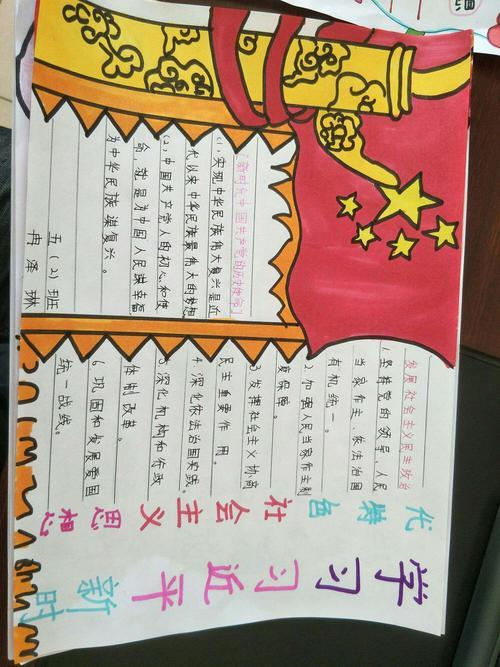 学习习近平新时
代特色社会主义思想
【新时代中国共产党的历史使命】
(1),实现中华民族伟大复兴是近
代以来中华民族最伟大的梦想
(2),中国共产党人的初心和使
命,就是为中国人民谋幸福
为中华民族谋复兴。
五(2)班
冉泽琳
发展社会主义民主政治
1.坚持党的领导、人民
当家作主、依法治国
有机统一。
2.加强人民当家作主制
度保障。
3.发挥社会主义协商
民主重要作用。
4.深化依法治国实践。
5.深化机构和行政
体制改革。
6.巩固和发展爱国
统一战线。